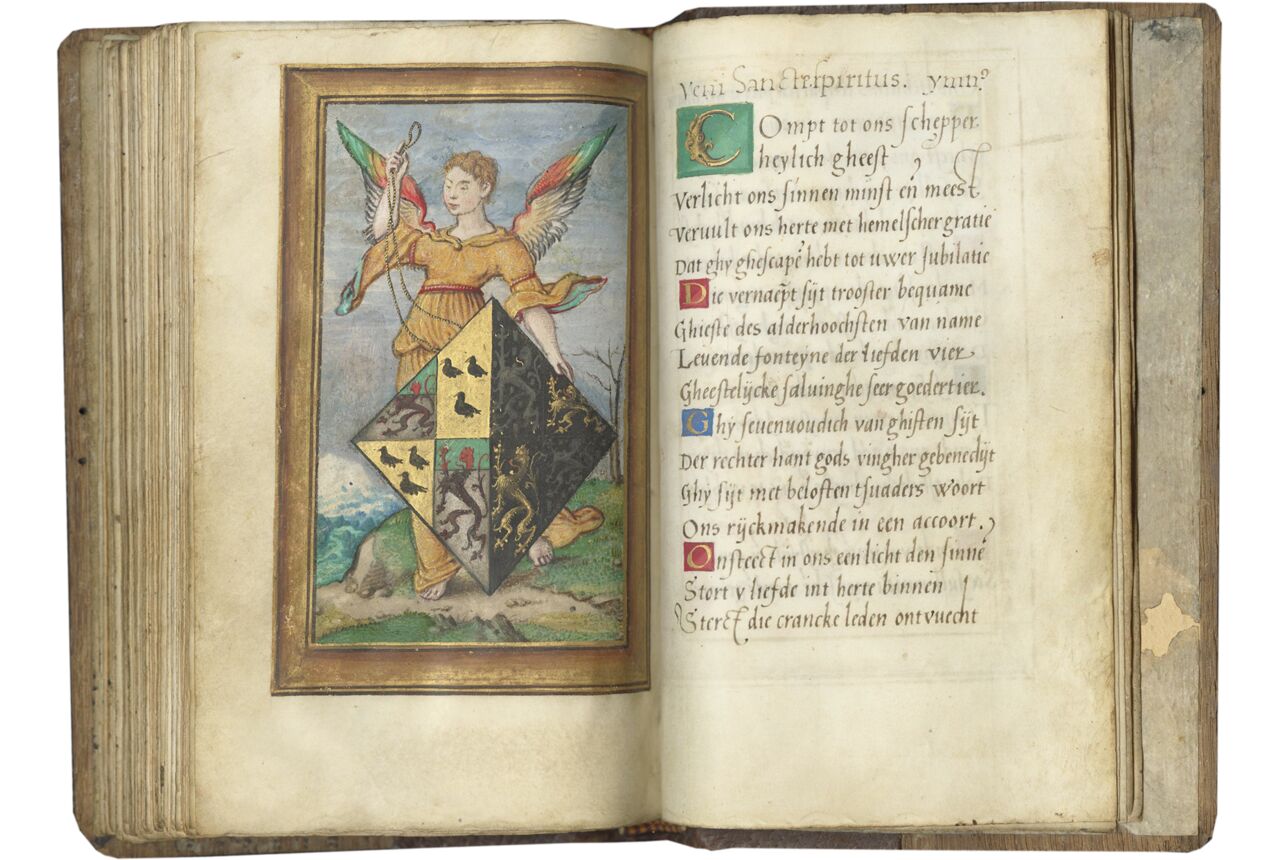 Veni Sancte spiritus. ymnº
Compt tot ons schepper
heylich gheest
Verlicht ons sinnen minst en̄ meest
Veruult ons herte met hemelscher gratie
Dat ghy ghescapē hebt tot uwer Jubilatie
Die vernaēpt sijt trooster bequame
Ghiefte des alderhoochsten van name
Leuende fonteyne der liefden vier
Gheestelijcke saluinghe seer goedertier.
Ghy seuenuoudich van ghiften sijt
Der rechter hant gods vingher gebenedijt
Ghy sijt met beloften tsuaders woort
Ons rijckmakende in een accoort.
Onsteect in ons een licht den sinnē
Stort v liefde int herte binnen
Sterct die crancke leden ontvuecht